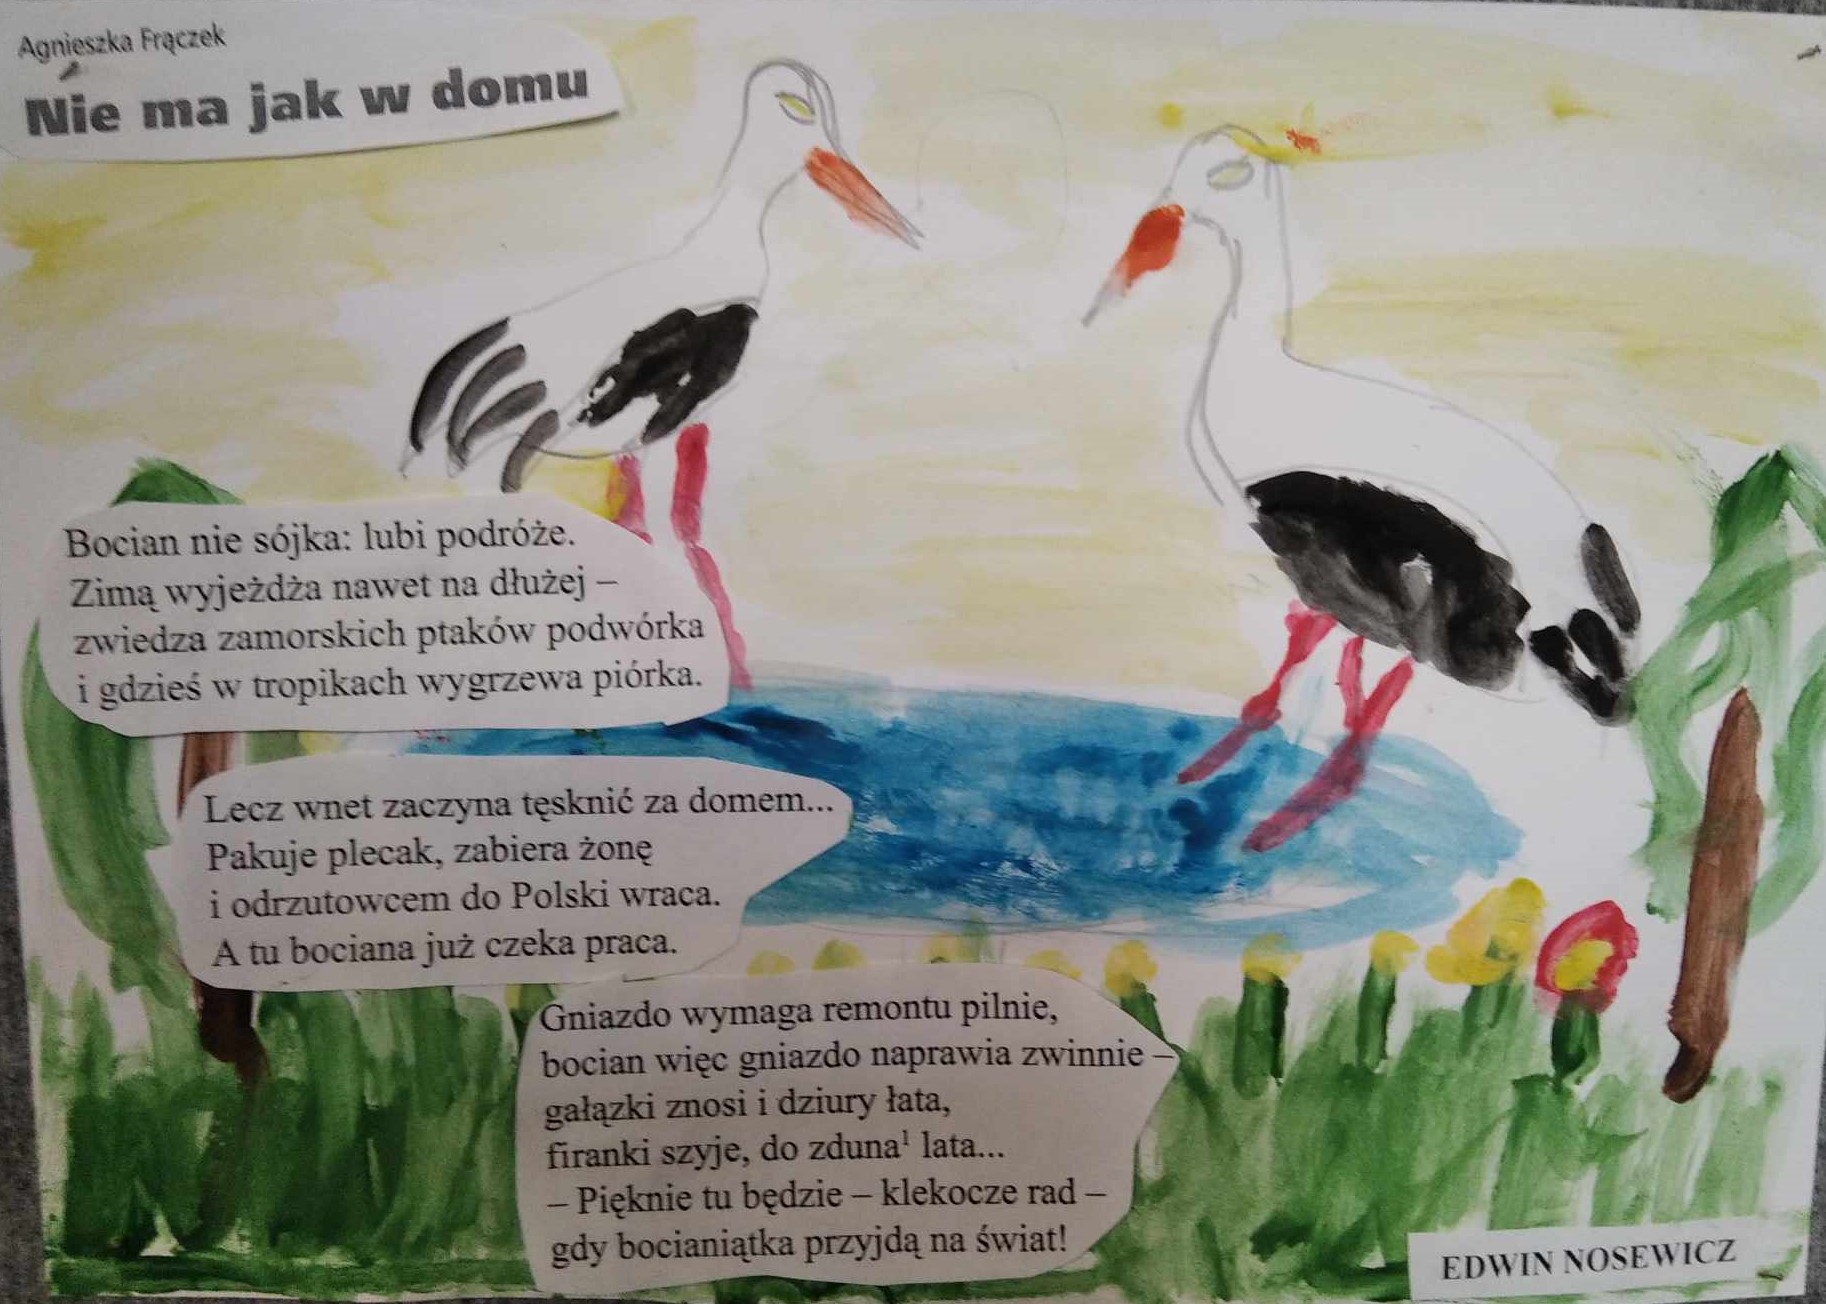 Agnieszka Frączek
Nie ma jak w domu
Bocian nie sójka: lubi podróże.
Zimą wyjeżdża nawet na dłużej –
zwiedza zamorskich ptaków podwórka
i gdzieś w tropikach wygrzewa piórka.
Lecz wnet zaczyna tęsknić za domem...
Pakuje plecak, zabiera żonę
i odrzutowcem do Polski wraca.
A tu bociana już czeka praca.
Gniazdo wymaga remontu pilnie,
bocian więc gniazdo naprawia zwinnie –
gałązki znosi i dziury łata,
firanki szyje, do zduna¹ lata...
– Pięknie tu będzie – klekocze rad –
gdy bocianiątka przyjdą na świat!
EDWIN NOSEWICZ